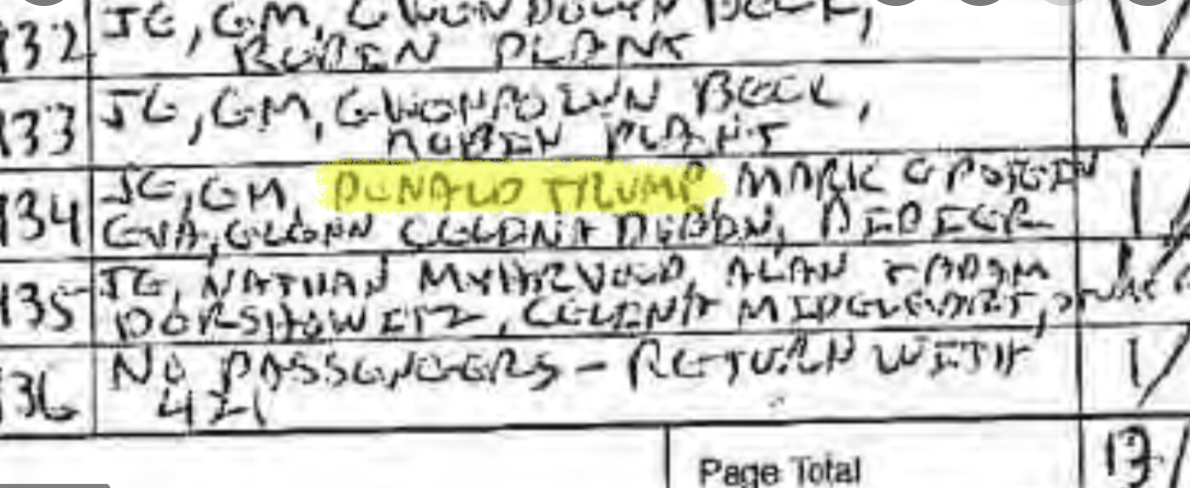 132 JE, GM, GWENDOLYN BECK,
RUBEN PLANT
133 JE, GM, GWENDOLYN BECK,
RUBEN PLANT
134 JE, GM, DONALD TRUMP, MARK EPSTEIN
EVA, GLENN CELINA DUBIN, DIDIER
135 JE, NATHAN MYHRVOLD, ALAN
DERSHOWITZ, CELINA MIDELFART,
136 NO PASSENGERS - RETURN WITH
421
Page Total 13